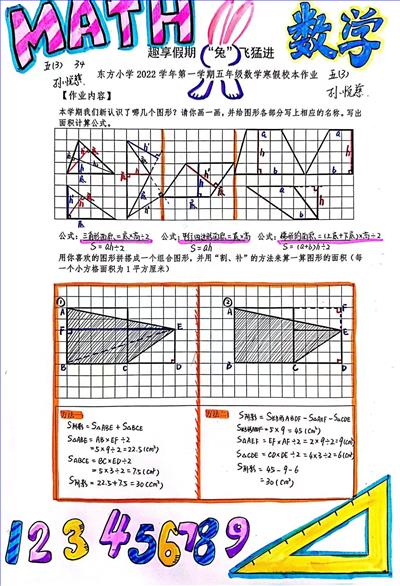 MATH 数学
趣享假期 “兔” 飞猛进
五(3) 34
孙悦慈
东方小学 2022 学年第一学期五年级数学寒假校本作业
五(3)
孙悦慈
【作业内容】
本学期我们新认识了哪几个图形？请你画一画，并给图形各部分写上相应的名称。写出
面积计算公式。
公式：三角形面积=底×高÷2 公式：平行四边形面积=底×高 公式：梯形的面积=(上底+下底)×高÷2
S=ah÷2 S=ah S=(a+b)h÷2
用你喜欢的图形拼搭成一个组合图形，并用“割、补”的方法来算一算图形的面积（每
一个小方格面积为 1 平方厘米）
① ②
A A F
F E E
B C D B C D
方法一:
S阴影=S△ABE+S△BCE
S△ABE=AB×EF÷2
=5×9÷2=22.5(cm²)
S△BCE=BC×ED÷2
=5×3÷2=7.5(cm²)
S阴影=22.5+7.5=30(cm²)
方法二:
S阴影=S长方形ABDF-S△AEF-S△CDE
S长方形ABDF=5×9=45(cm²)
S△AEF=EF×AF÷2=2×9÷2=9(cm²)
S△CDE=CD×DE÷2=4×3÷2=6(cm²)
S阴影=45-9-6
=30(cm²)
1 2 3 4 5 6 7 8 9